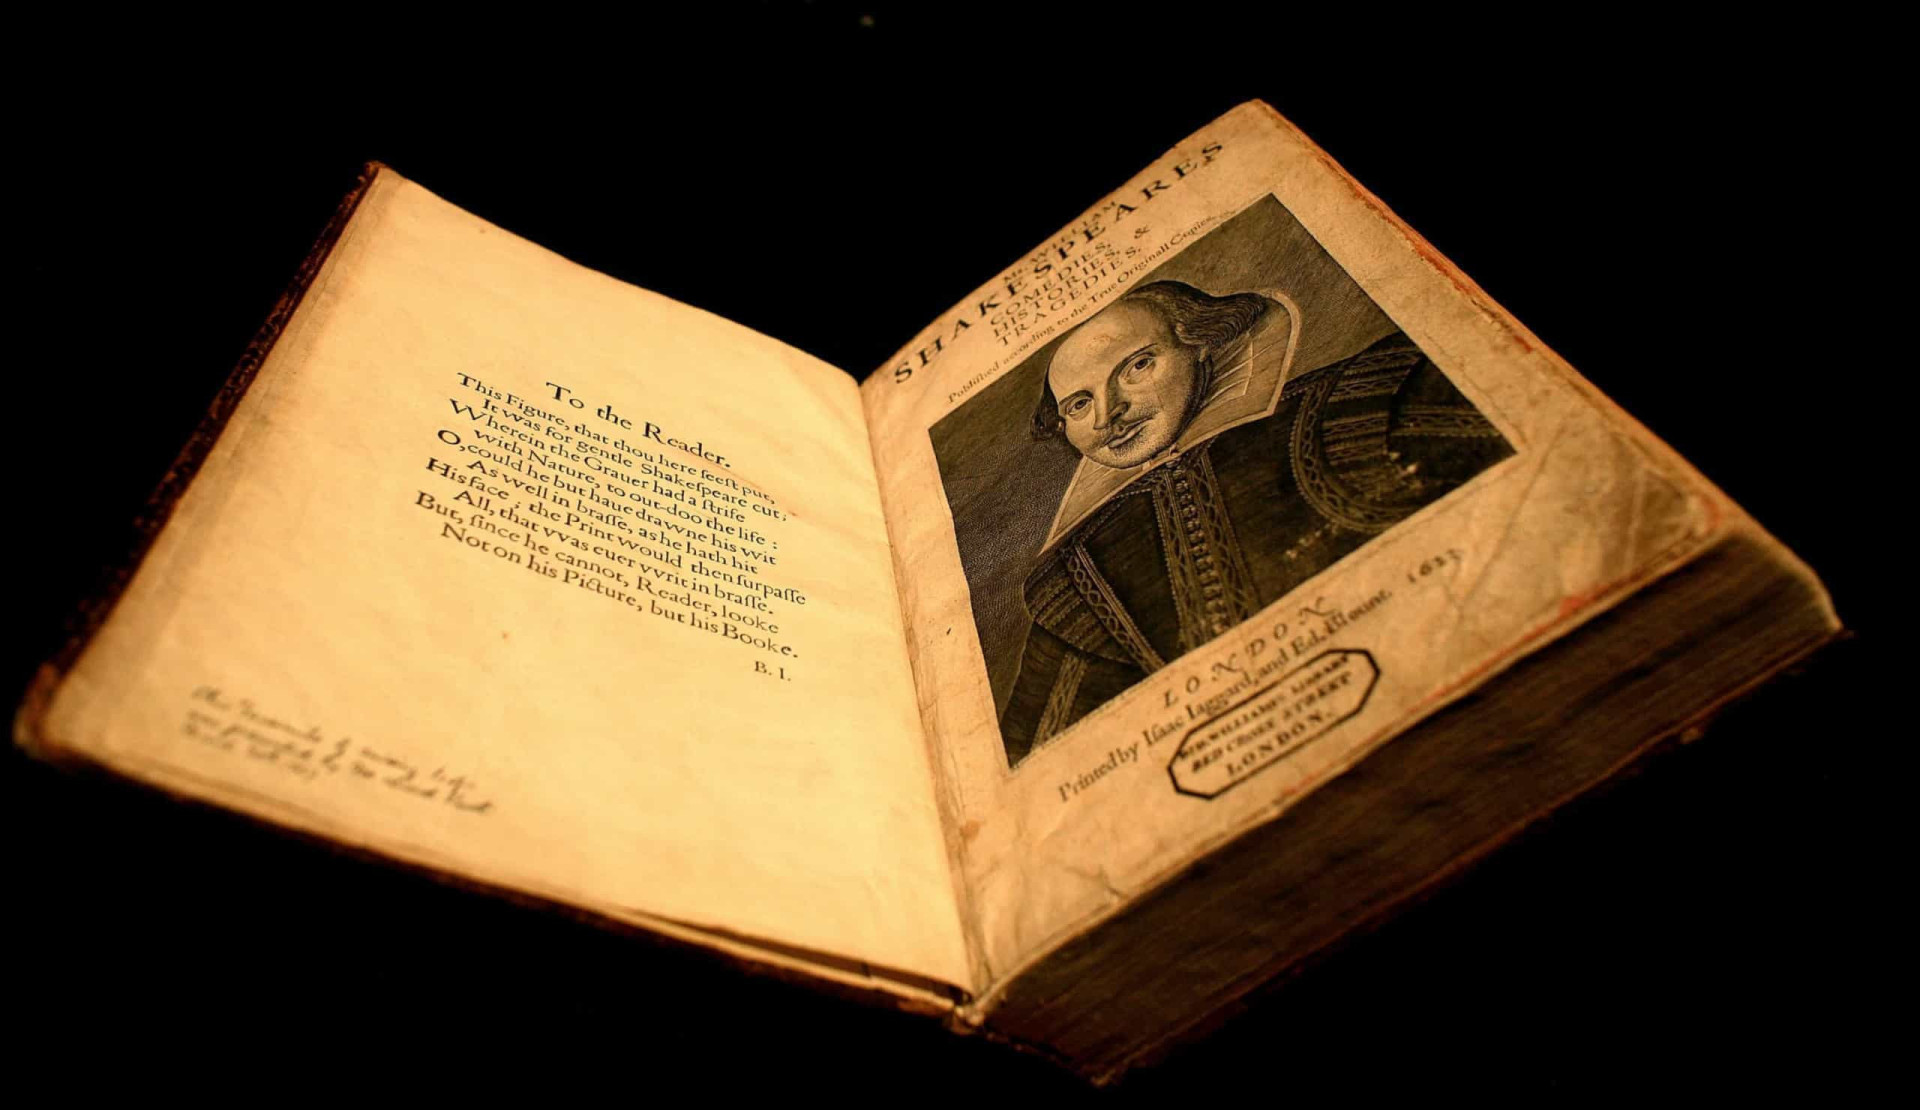 To the Reader.
This Figure, that thou here ſeeſt put,
It was for gentle Shakeſpeare cut;
Wherein the Grauer had a ſtrife
with Nature, to out-doo the life :
O, could he but haue drawne his wit
As well in braſſe, as he hath hit
His face ; the Print would then ſurpaſſe
All, that vvas euer vvrit in braſſe.
But, ſince he cannot, Reader, looke
Not on his Picture, but his Booke.
B. I.
Mr. WILLIAM
SHAKESPEARES
COMEDIES,
HISTORIES, &
TRAGEDIES.
Publiſhed according to the True Originall Copies.
LONDON
Printed by Iſaac Iaggard, and Ed. Blount. 1623
DR. WILLIAMS' LIBRARY
RED CROSS STREET
LONDON.